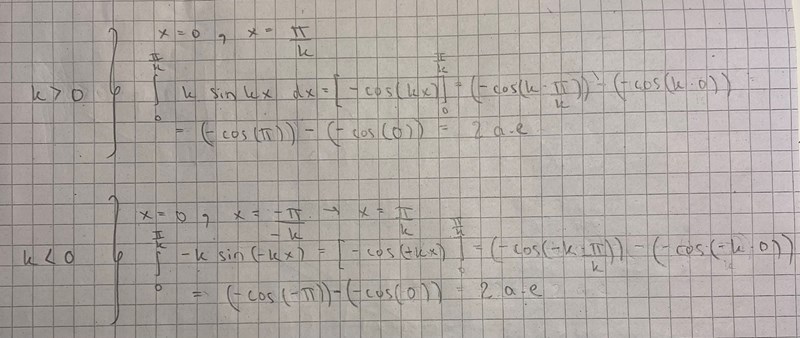 x = 0 , x = π/k
k > 0 { ∫₀^(π/k) k sin kx dx = [-cos(kx)]₀^(π/k) = (-cos(k·π/k)) - (-cos(k·0))
= (-cos(π)) - (-cos(0)) = 2 a.e
x = 0 , x = -π/-k → x = π/k
k < 0 { ∫₀^(π/k) -k sin(-kx) = [-cos(-kx)]₀^(π/k) = (-cos(-k·π/k)) - (-cos(-k·0))
= (-cos(-π)) - (-cos(0)) = 2 a.e